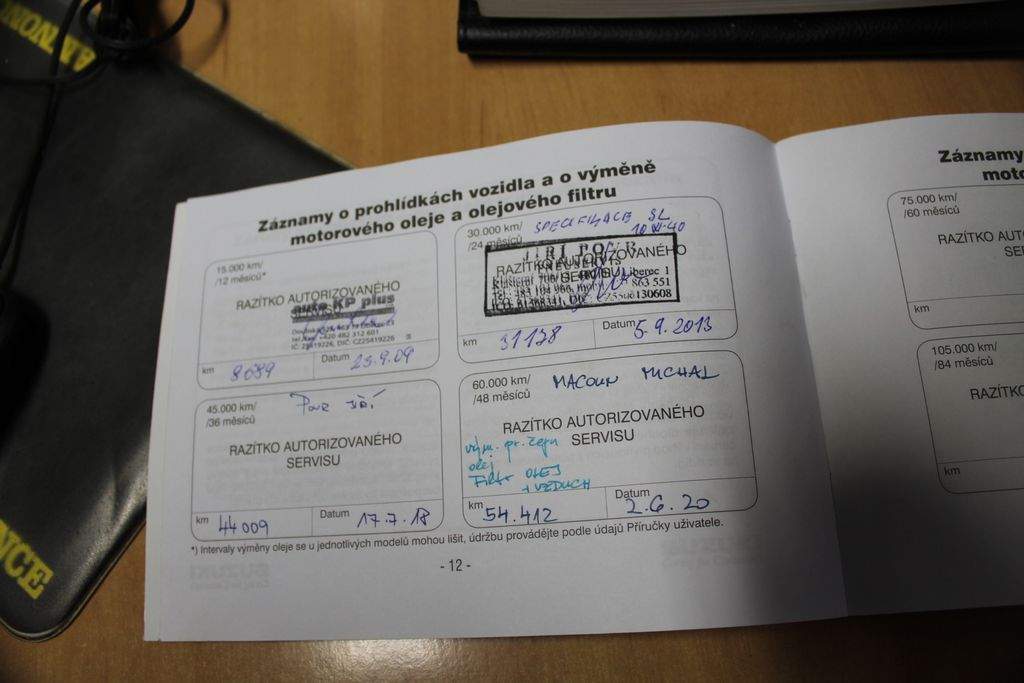 Záznamy o prohlídkách vozidla a o výměně
motorového oleje a olejového filtru
15.000 km/
/12 měsíců*
RAZÍTKO AUTORIZOVANÉHO
SERVISU
auto KP plus
km 8689
Datum 23.9.09
30.000 km/
/24 měsíců
SPECIFIKACE SL
10W-40
RAZÍTKO AUTORIZOVANÉHO
SERVISU
PNEUSERVIS
Liberec 1
km 31128
Datum 5.9.2013
45.000 km/
/36 měsíců
Jiří
RAZÍTKO AUTORIZOVANÉHO
SERVISU
km 44009
Datum 17.7.18
60.000 km/
/48 měsíců
MACOUN MICHAL
RAZÍTKO AUTORIZOVANÉHO
SERVISU
olej
Filtr OLEJ
+ VZDUCH
km 54.412
Datum 2.6.20
*) Intervaly výměny oleje se u jednotlivých modelů mohou lišit, údržbu provádějte podle údajů Příručky uživatele.
- 12 -
Záznamy
75.000 km/
/60 měsíců
km
105.000 km/
/84 měsíců
km